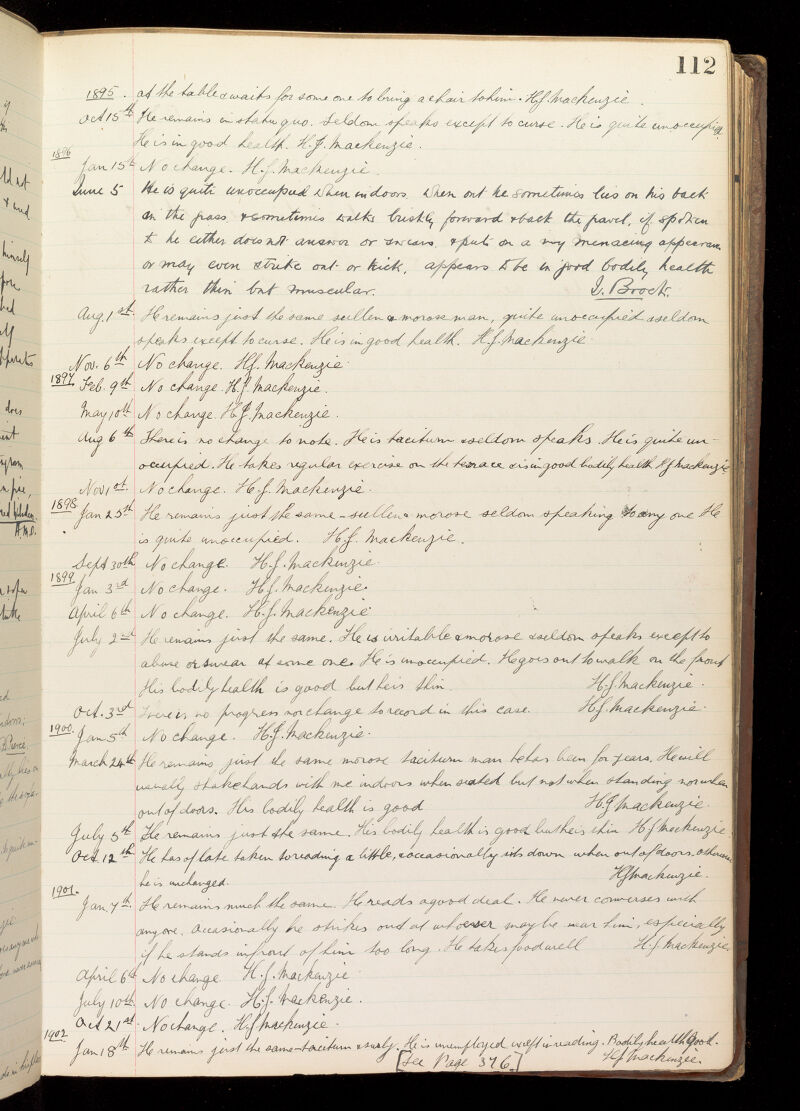 112
1895. at the table & waits for some one to bring a chair to him. H.J. Mackenzie.
Oct 15th He remains in statu quo. Seldom speaks except to curse. He is quite unoccupied.
He is in good health. H.J. Mackenzie.
1896
Jan 15th No change. H.J. Mackenzie.
June 5 He is quite unoccupied when indoors, when out he sometimes lies on his back
on the grass, & sometimes walks briskly forward & back the gravel, if spoken
to he either does not answer or swears, & puts on a very menacing appearance
or may even strike out or kick, appears to be in good bodily health
rather thin but muscular. J. Brock.
Aug. 1st. He remains just the same sullen & morose man, quite unoccupied & seldom
speaks except to curse. He is in good health. H.J. Mackenzie.
Nov. 6th No change. H.J. Mackenzie.
1897 Feb. 9th No change. H.J. Mackenzie.
May 10th No change. H.J. Mackenzie.
Aug 6th There is no change to note. He is taciturn & seldom speaks. He is quite un-
occupied. He takes regular exercise on the terrace & is in good bodily health H.J. Mackenzie
Nov 1st. No change. H.J. Mackenzie.
1898
Jan 25th He remains just the same - sullen & morose seldom speaking to any one He
is quite unoccupied. H.J. Mackenzie.
Sept 30th No change. H.J. Mackenzie.
1899
Jan 3rd No change. H.J. Mackenzie.
April 6th No change. H.J. Mackenzie.
July 2nd He remains just the same. He is irritable & morose & seldom speaks except to
abuse or swear at some one. He is unoccupied. He goes out to walk on the front
His bodily health is good but he is thin. H.J. Mackenzie.
Oct. 3rd There is no progress nor change to record in this case. H.J. Mackenzie.
1900. Jan 5th No change. H.J. Mackenzie.
March 24th He remains just the same morose taciturn man he has been for years. He will
usually shake hands with me indoors when seated but not when standing nor when
out of doors. His bodily health is good H.J. Mackenzie.
July 5th He remains just the same. His bodily health is good but he is thin H.J. Mackenzie.
Oct. 12th He has of late taken to reading a little, & occasionally sits down when out of doors, otherwise
he is unchanged. H.J. Mackenzie.
1901.
Jan. 7th He remains much the same. He reads a good deal. He never converses with
anyone. Occasionally he strikes out at whoever may be near him, especially
if he stands in front of him too long. He takes food well H.J. Mackenzie
April 6th No change H.J. Mackenzie
July 10th No change. H.J. Mackenzie.
Oct 21st No change. H.J. Mackenzie.
1902
Jan 18th He remains just the same - taciturn & surly. He is unemployed except in reading. Bodily health good.
[See Page 376.] H.J. Mackenzie.